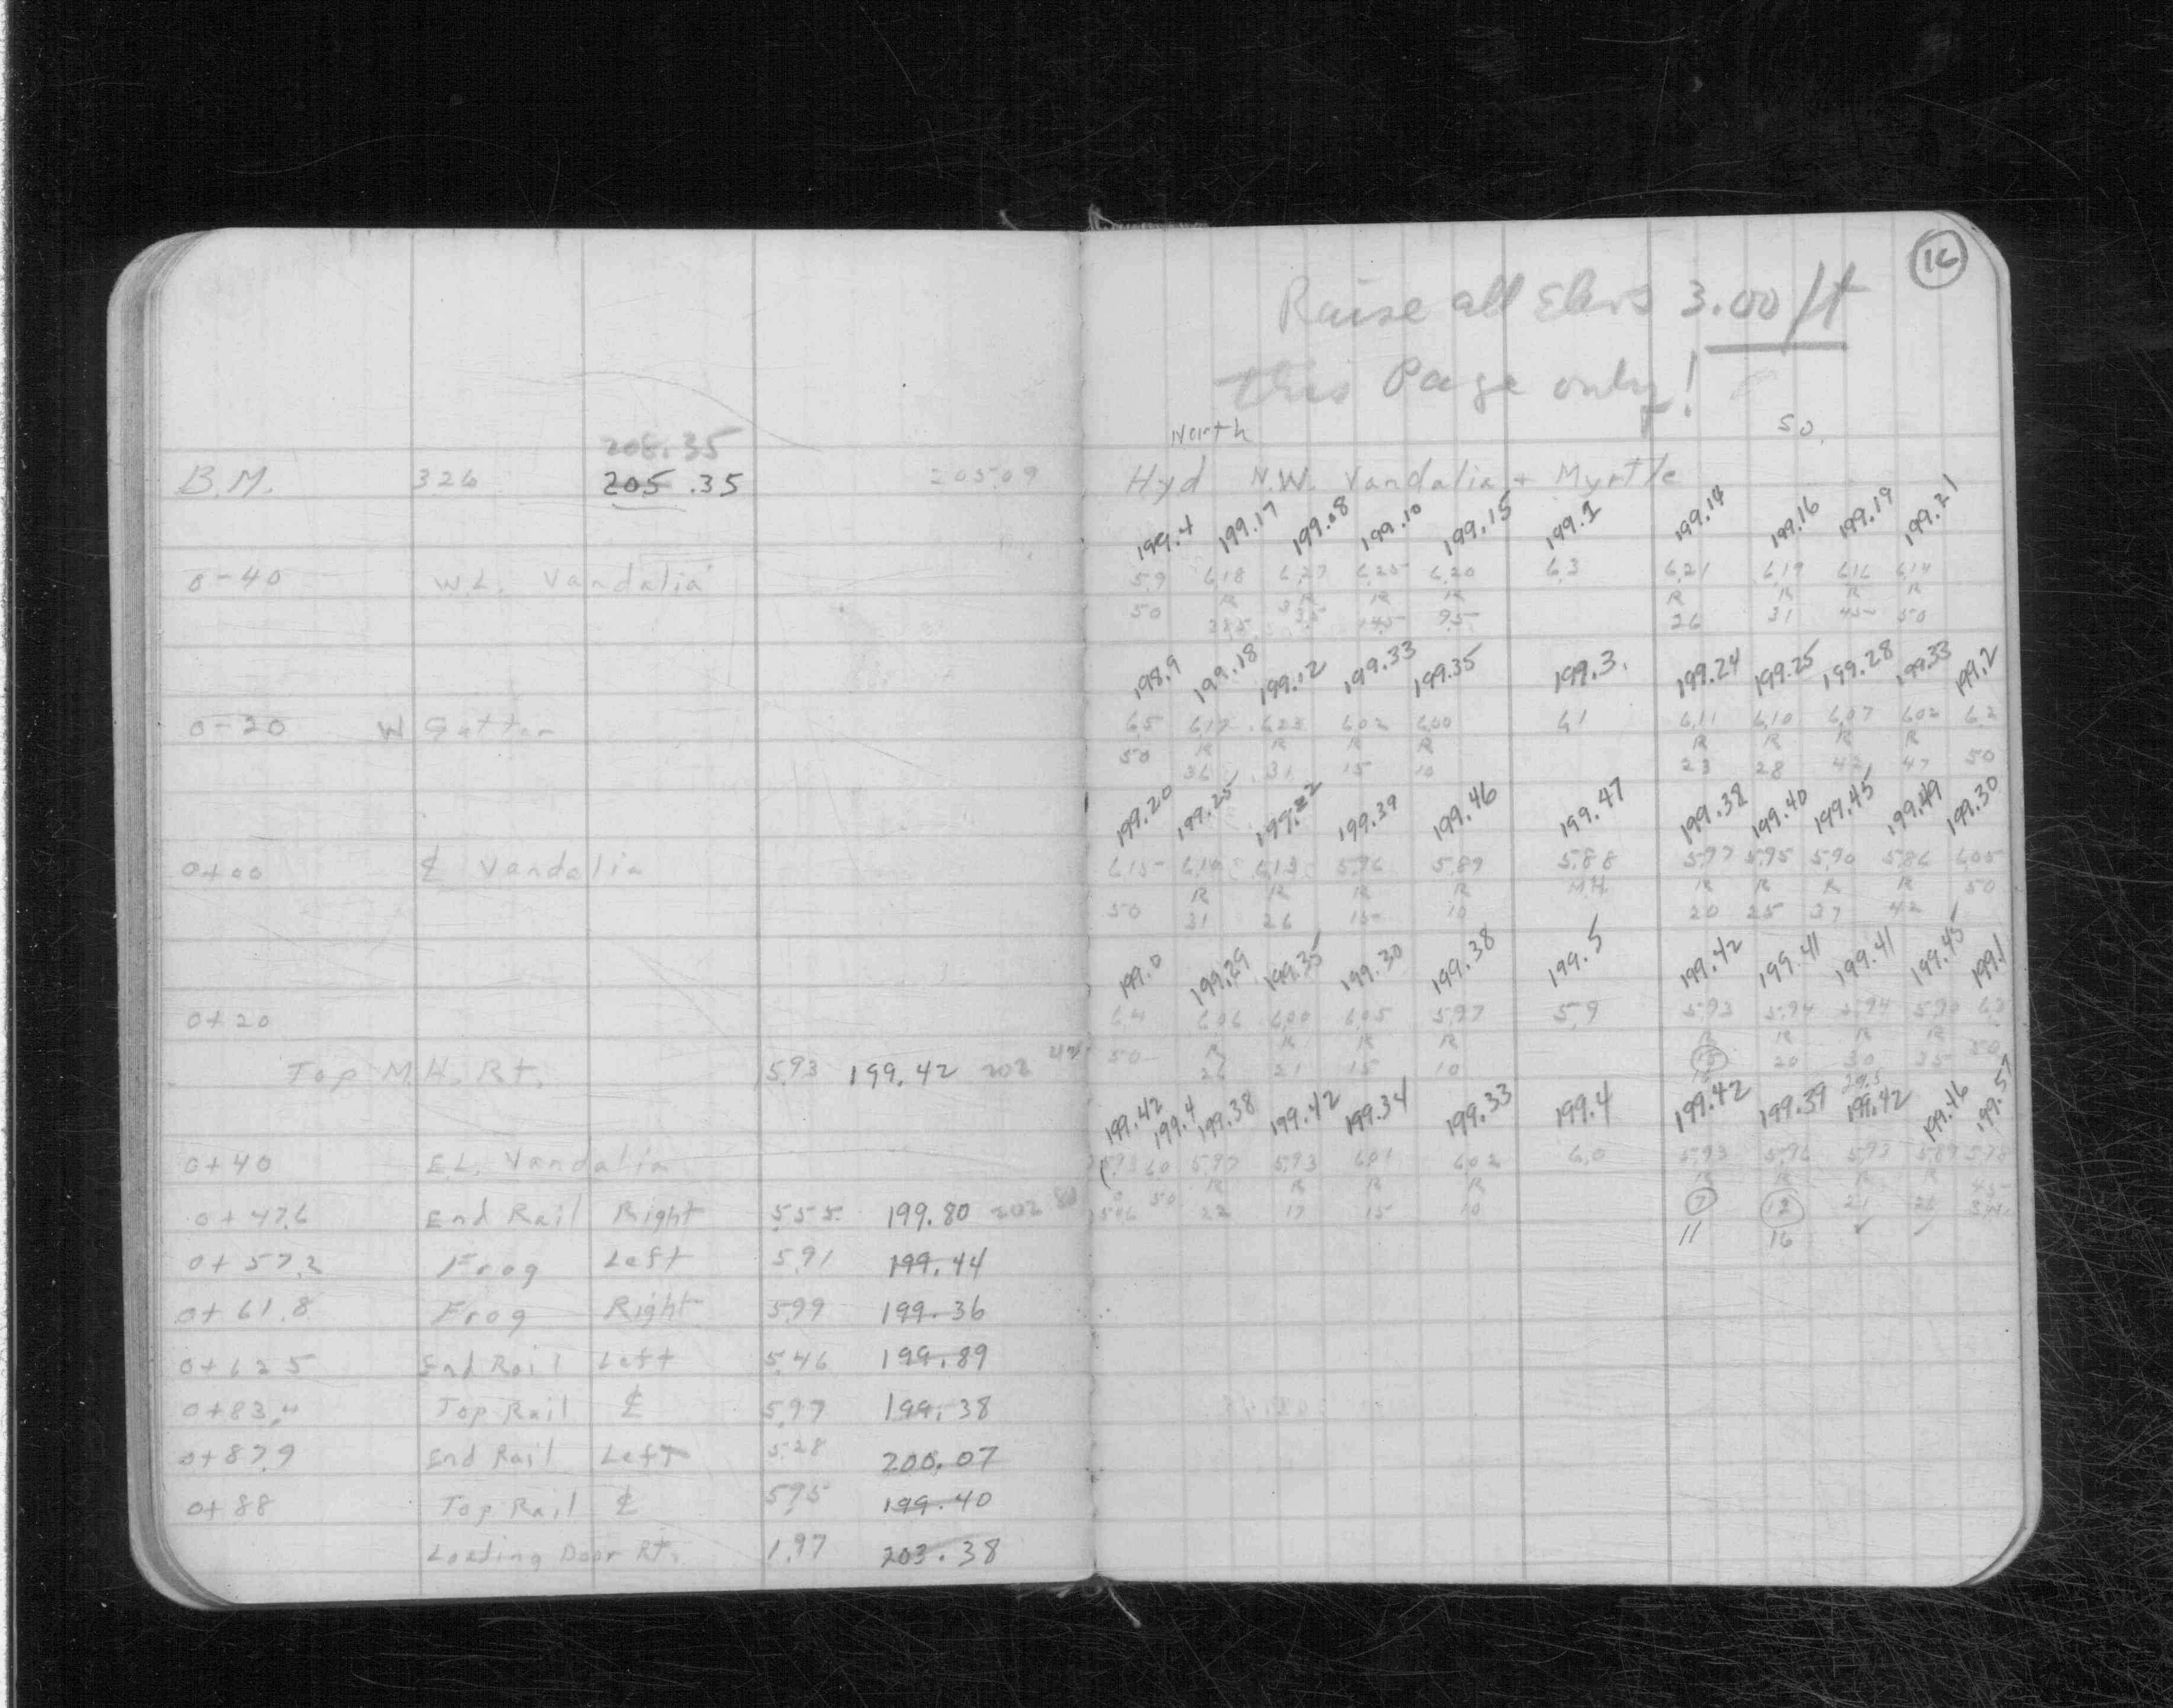 16
Raise all Elevs 3.00 ft
this Page only!
North So.
208.35
B.M. 326 205.35 205.09 Hyd N.W. Vandalia + Myrtle
199.4 199.17 199.08 199.10 199.15 199.1 199.14 199.16 199.19 199.21
0-40 W.L. Vandalia 5.9 6.18 6.27 6.25 6.20 6.3 6.21 6.19 6.16 6.14
R R R R R R R R
50 14.5 9.5 26 31 45 50
198.9 199.18 199.12 199.33 199.35 199.3 199.24 199.25 199.28 199.33 199.2
0-20 W Gutter 6.5 6.17 6.23 6.02 6.00 6.1 6.11 6.10 6.07 6.02 6.2
R R R R R R R R
50 36 31 15 10 23 28 42 47 50
199.20 199.25 199.22 199.39 199.46 199.47 199.38 199.40 199.45 199.49 199.30
0+00 ℄ Vandalia 6.15 6.10 6.13 5.96 5.89 5.88 5.97 5.95 5.90 5.86 6.05
R R R R M.H. R R R R
50 31 26 15 10 20 25 37 42 50
199.0 199.29 199.35 199.30 199.38 199.5 199.42 199.41 199.41 199.45 199.1
0+20 6.4 6.06 6.00 6.05 5.97 5.9 5.93 5.94 5.94 5.90 6.3
R R R R R R R R
50 26 21 15 10 15 20 30 35 50
Top M.H. Rt. 5.93 199.42 202 42
199.42 199.4 199.38 199.42 199.34 199.33 199.4 199.42 199.39 199.42 199.46 199.57
0+40 E.L. Vandalia 5.93 6.0 5.97 5.93 6.01 6.02 6.0 5.93 5.96 5.93 5.89 5.78
R R R R R R R R
50 22 17 15 10 7 12 21 26
11 16
0+47.6 End Rail Right 5.55 199.80 202 80
0+57.2 Frog Left 5.91 199.44
0+61.8 Frog Right 5.99 199.36
0+62.5 End Rail Left 5.46 199.89
0+83.4 Top Rail ℄ 5.97 199.38
0+87.9 End Rail Left 5.28 200.07
0+88 Top Rail ℄ 5.95 199.40
Loading Door Rt. 1.97 203.38